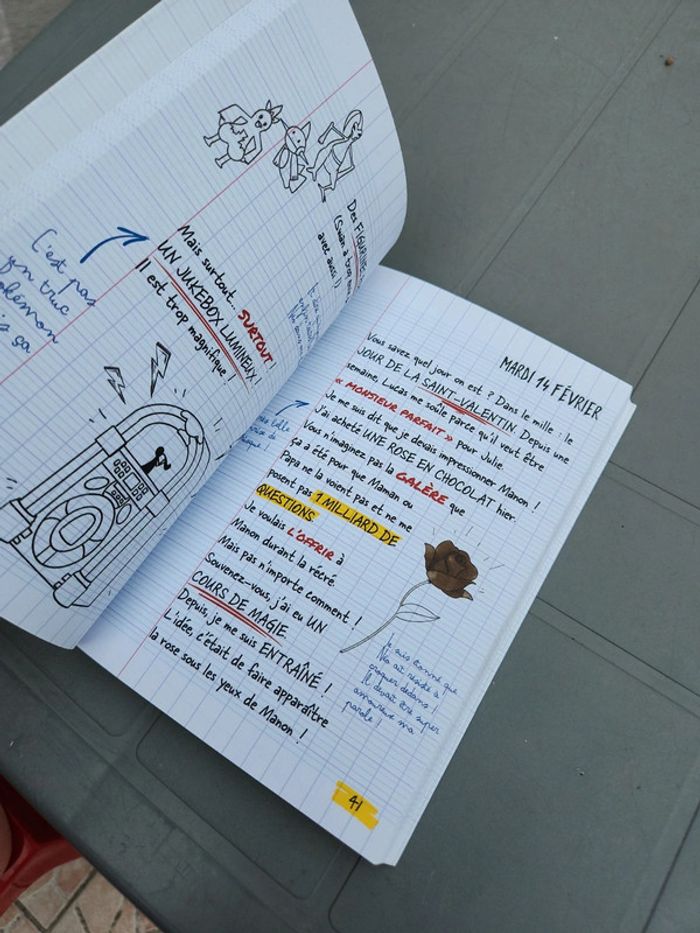 Des FIGURINES
(Swan a trop
avec aussi !)
Mais surtout... SURTOUT !
UN JUKEBOX LUMINEUX !
Il est trop magnifique !
C'est pas
un truc
sa
MARDI 14 FÉVRIER
Vous savez quel jour on est ? Dans le mille : le
JOUR DE LA SAINT-VALENTIN. Depuis une
semaine, Lucas me soûle parce qu'il veut être
« MONSIEUR PARFAIT » pour Julie.
Je me suis dit que je devais impressionner Manon !
J'ai acheté UNE ROSE EN CHOCOLAT hier.
Vous n'imaginez pas la GALÈRE que
ça a été pour que Maman ou
Papa ne la voient pas et ne me
posent pas 1 MILLIARD DE
QUESTIONS
Je voulais L'OFFRIR à
Manon durant la récré.
Mais pas n'importe comment !
Souvenez-vous, j'ai eu UN
COURS DE MAGIE
Depuis, je me suis ENTRAÎNÉ !
L'idée, c'était de faire apparaître
la rose sous les yeux de Manon !
Je suis étonné que
Néo ait résisté à
croquer dedans !
Il devait être super
amoureux ma
parole !
41